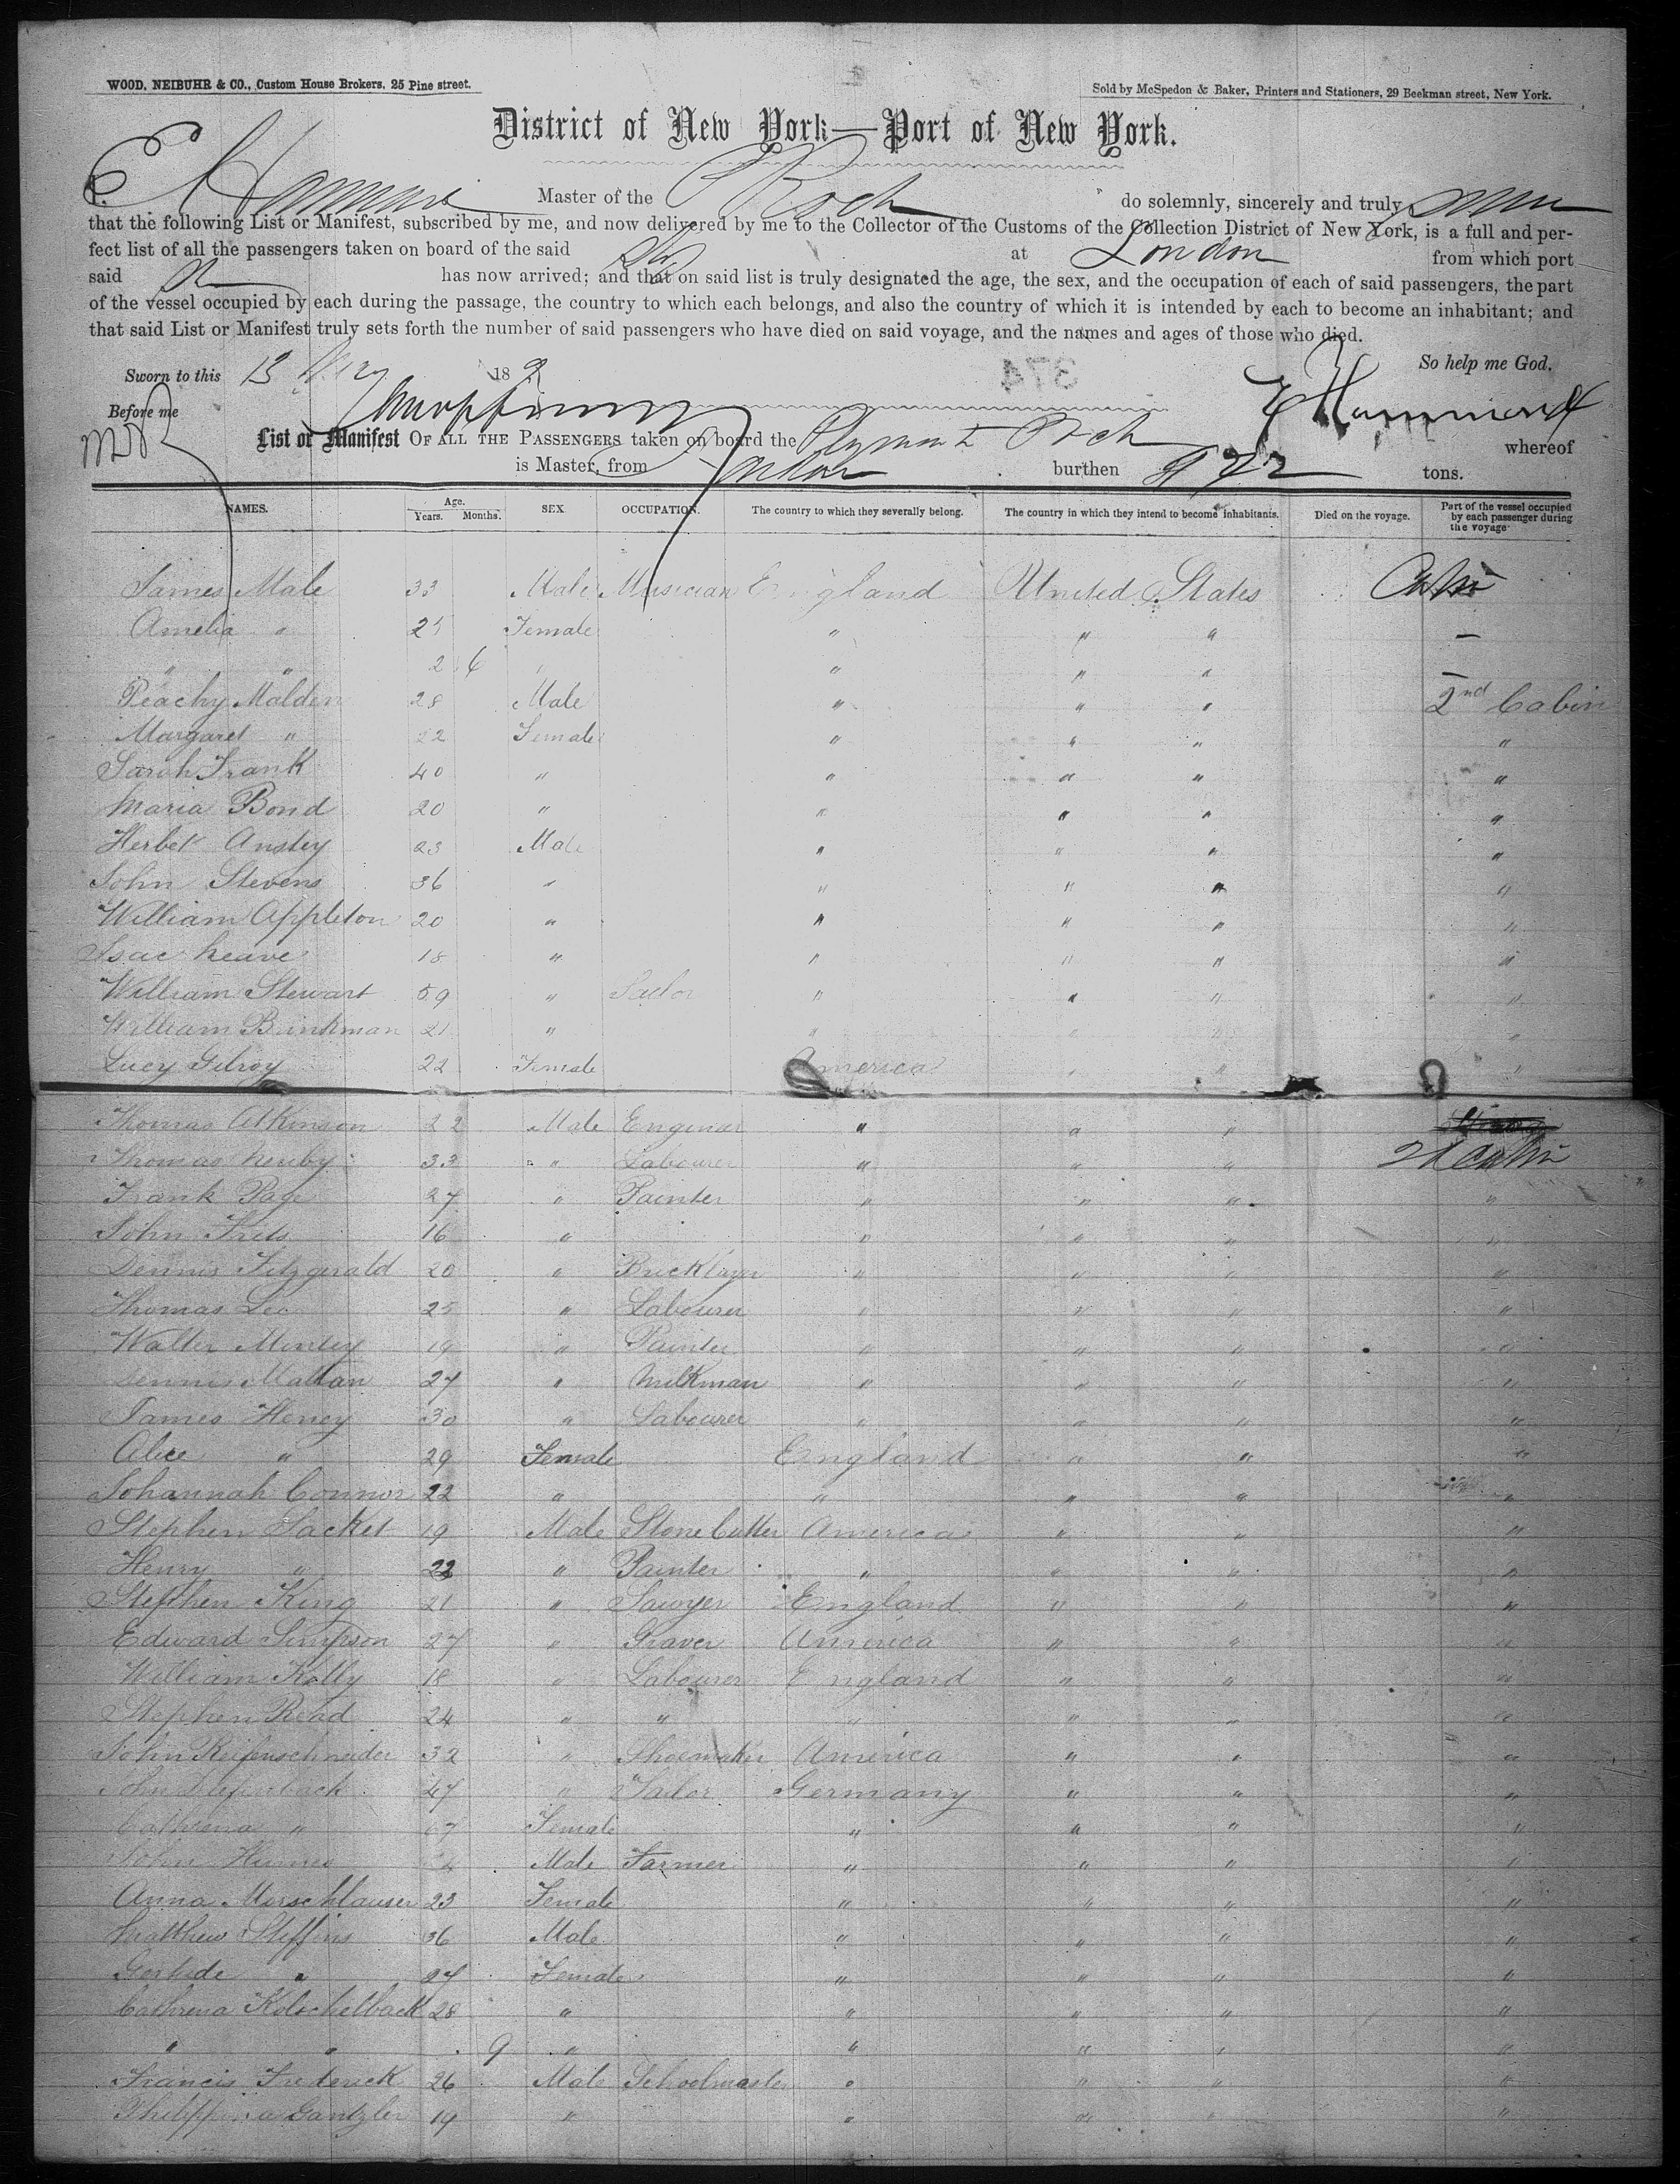 WOOD, NEIBUHR & CO., Custom House Brokers, 25 Pine street.
Sold by McSpedon & Baker, Printers and Stationers, 29 Beekman street, New York.
District of New York—Port of New York.
I, E Hammond Master of the Rock do solemnly, sincerely and truly
that the following List or Manifest, subscribed by me, and now delivered by me to the Collector of the Customs of the Collection District of New York, is a full and per-
fect list of all the passengers taken on board of the said at London from which port
said has now arrived; and that on said list is truly designated the age, the sex, and the occupation of each of said passengers, the part
of the vessel occupied by each during the passage, the country to which each belongs, and also the country of which it is intended by each to become an inhabitant; and
that said List or Manifest truly sets forth the number of said passengers who have died on said voyage, and the names and ages of those who died.
So help me God.
Sworn to this 13 May 18 374
Before me E Hammond
List or Manifest OF ALL THE PASSENGERS taken on board the Plymouth Rock whereof
is Master, from London burthen tons.
NAMES. Age. Years. Months. SEX OCCUPATION. The country to which they severally belong. The country in which they intend to become inhabitants. Died on the voyage. Part of the vessel occupied by each passenger during the voyage
James Male 33 Male Musician England United States Cabin
Amelia " 25 Female " " " —
" " 2 6 " " " " —
Peachy Malden 28 Male " " " 2nd Cabin
Margaret " 22 Female " " " "
Sarah Frank 40 " " " " "
Maria Bond 20 " " " " "
Herbet Anstey 23 Male " " " "
John Stevens 36 " " " " "
William Appleton 20 " " " " "
Isac Neave 18 " " " " "
William Stewart 59 " " " " "
William Brinkman 21 " " " " "
Lucy Gilroy 22 Female America " " "
Thomas Atkinson 22 Male Enginear " " "
Thomas 33 " Labourer " " " 2d Cabin
Frank Page 27 " Painter " " " "
John 16 " " " " "
Dennis Fitzgerald 20 " Bricklayer " " " "
Thomas Lee 25 " Labourer " " " "
Walter 19 " Painter " " " "
Dennis Mattan 27 " Milkman " " " "
James Heney 30 " Labourer " " " "
Alice " 29 Female England " " "
Johannah Connor 22 " " " " "
Stephen Sacket 19 Male Stone Cutter America " " "
Henry " 22 " Painter " " " "
Stephen King 21 " Sawyer England " " "
Edward Simpson 27 " Graver America " " "
William Kelly 18 " Labourer England " " "
Stephen Read 24 " " " " " "
John Reifenschneider 32 " Shoemaker America " " "
John 47 " Germany " " "
Cathrena " 67 Female " " " "
John Male Farmer " " " "
Anna Morschlauser 23 Female " " " "
Matthew Steffins 36 Male " " " "
Gertude " 27 Female " " " "
Cathrena Kolschetback 28 " " " " "
" " 9 " " " " "
Francis Frederick 26 Male Schoolmaster " " " "
Philippina Gantzler 19 " " " " "